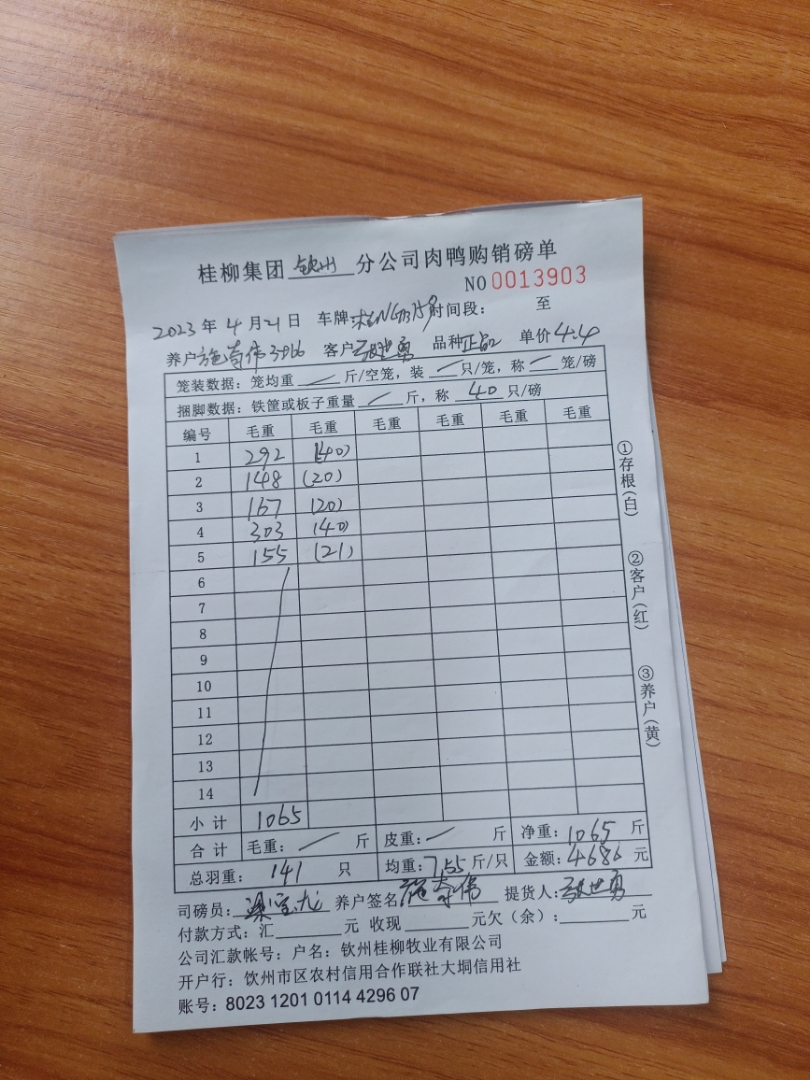 桂柳集团 钦州 分公司肉鸭购销磅单
NO 0013903
2023 年 4 月 21 日 车牌: 时间段: 至
养户 施寿伟 客户 品种 正品 单价 4.4
笼装数据: 笼均重 斤/空笼, 装 只/笼, 称 笼/磅
捆脚数据: 铁筐或板子重量 斤, 称 40 只/磅
编号 毛重 毛重 毛重 毛重 毛重 毛重
1 292 (40)
2 148 (20)
3 167 (20)
4 303 (40)
5 155 (21)
6
7
8
9
10
11
12
13
14
小计 1065
合计 毛重: 斤 皮重: 斤 净重: 1065 斤
总羽重: 141 只 均重: 7.55 斤/只 金额: 4686 元
司磅员: 养户签名 施寿伟 提货人:
付款方式: 汇 元 收现 元欠(余): 元
公司汇款帐号: 户名: 钦州桂柳牧业有限公司
开户行: 钦州市区农村信用合作联社大垌信用社
账号: 8023 1201 0114 4296 07
①存根(白)
②客户(红)
③养户(黄)